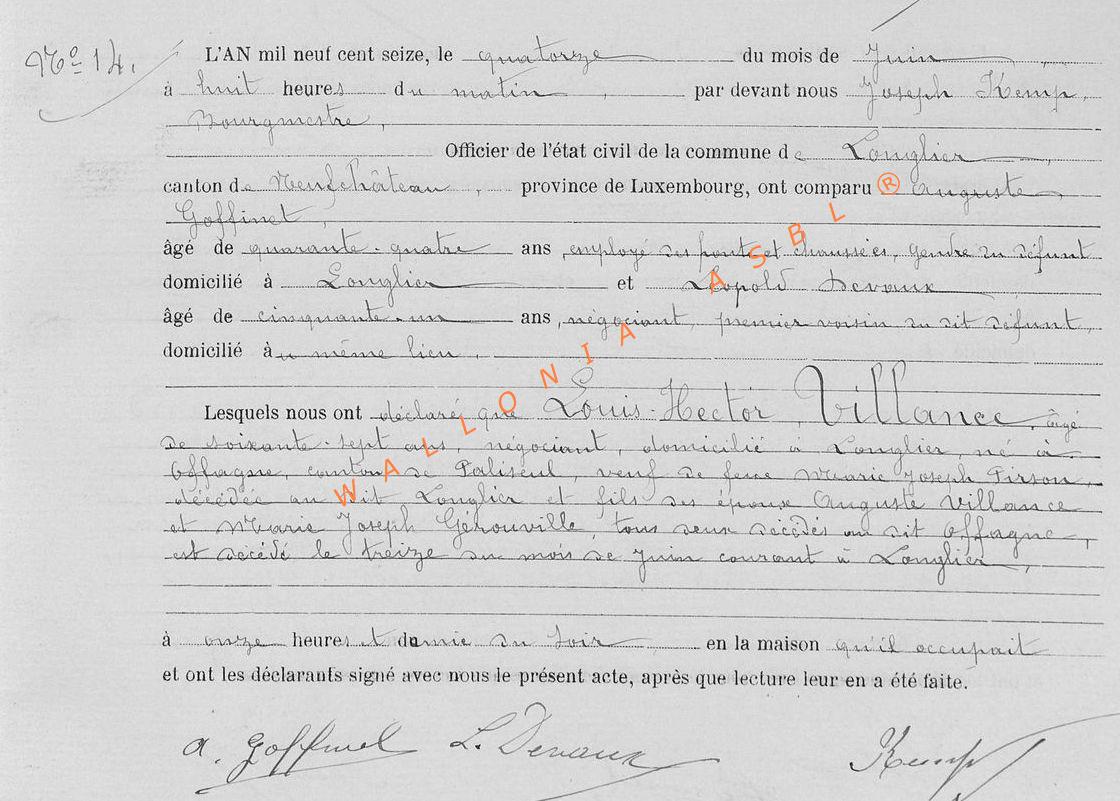 N° 14.
L'AN mil neuf cent seize, le quatorze du mois de Juin,
à huit heures du matin, par devant nous Joseph Kemp,
Bourgmestre,
Officier de l'état civil de la commune de Longlier,
canton de Neufchâteau, province de Luxembourg, ont comparu ® Auguste
Goffinet,
âgé de quarante-quatre ans, employé des ponts et chaussées, gendre du défunt
domicilié à Longlier et Léopold Devaux
âgé de cinquante-un ans, négociant, premier voisin du dit défunt,
domicilié au même lieu,
Lesquels nous ont déclaré que Louis-Hector Villance, âgé
de soixante-sept ans, négociant, domicilié à Longlier, né à
Offagne, canton de Paliseul, veuf de feue Marie Joseph Pirson,
décédée au dit Longlier et fils des époux Auguste Villance
et Marie Joseph Gérouville, tous deux décédés au dit Offagne,
est décédé le treize du mois de Juin courant à Longlier,
à onze heures et demie du soir en la maison qu'il occupait
et ont les déclarants signé avec nous le présent acte, après que lecture leur en a été faite.
a. Goffinet L. Devaux Kemp
WALLONIA ASBL